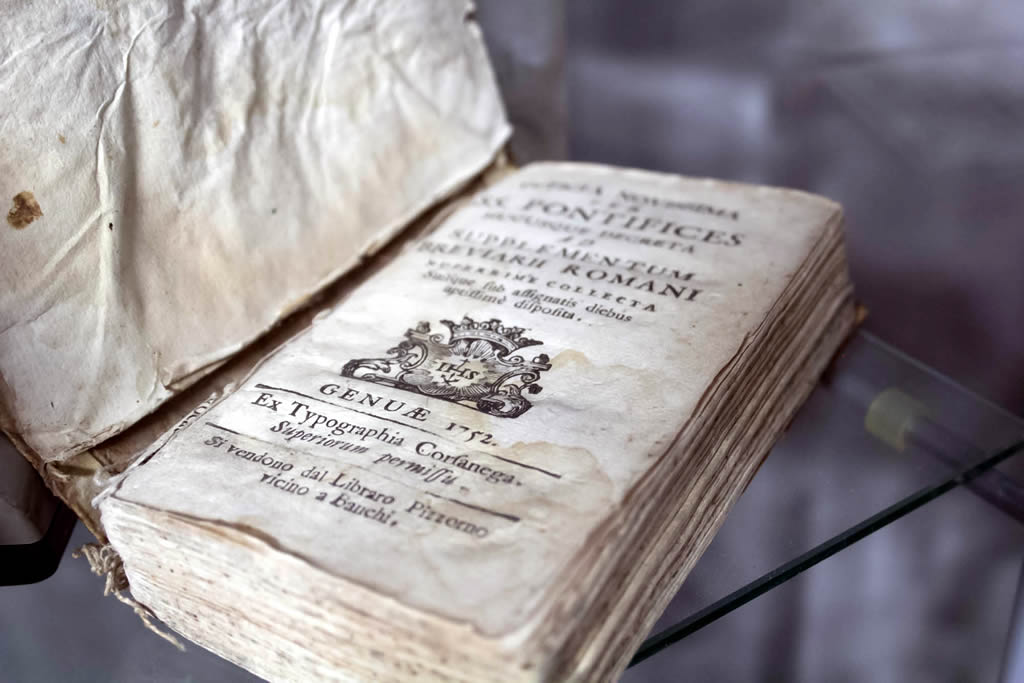 NOVISSIMA
SS. PONTIFICES
DECRETA
AD
SUPPLEMENTUM
BREVIARII ROMANI
COLLECTA
Suisque sub assignatis diebus
aptissimè disposita.
IHS
GENUÆ 1752.
Ex Typographia Corsanega.
Superiorum permissu.
Si vendono dal Libraro Pizzorno
vicino a Banchi.